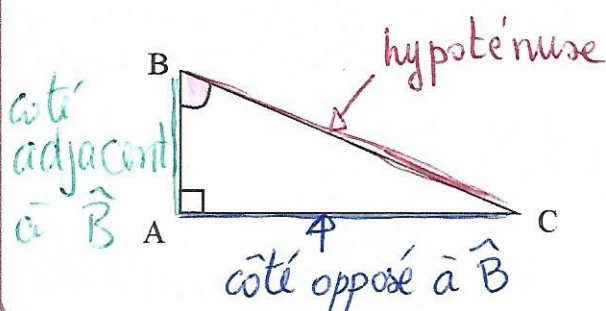 hypoténuse
B
coté
adjacent
à B̂
A
C
côté opposé à B̂